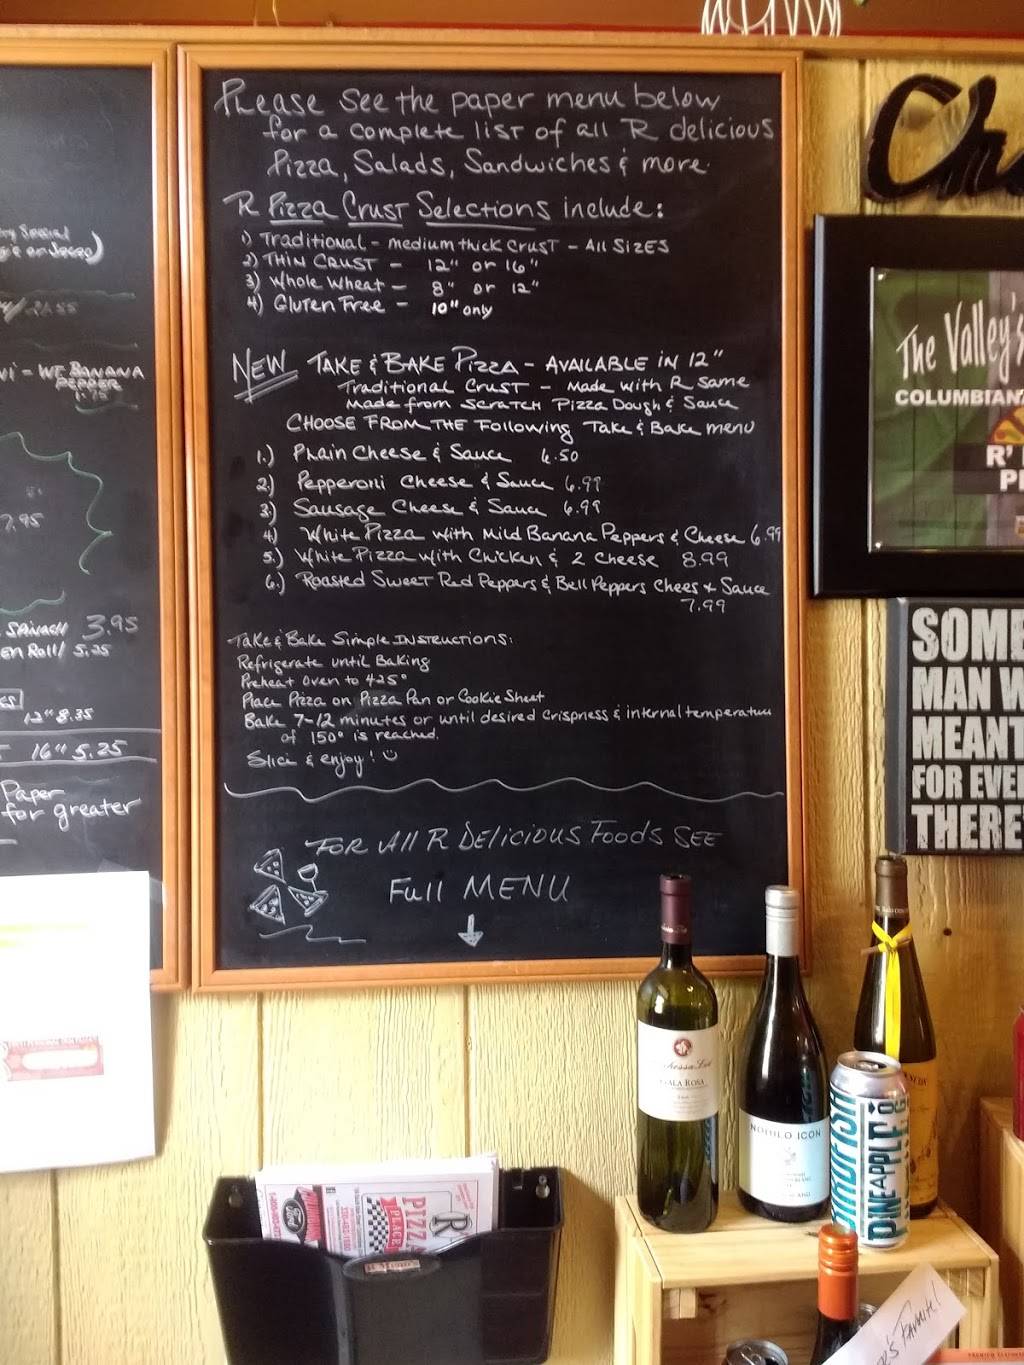 Please see the paper menu below
for a complete list of all R delicious
Pizza, Salads, Sandwiches & more.
R Pizza Crust Selections include:
1) Traditional - medium thick crust - All SIZES
2) THIN CRUST - 12" or 16"
3) Whole Wheat - 8" or 12"
4) Gluten Free - 10" only
NEW TAKE & BAKE PIZZA - AVAILABLE IN 12"
Traditional Crust - Made with R same
Made from scratch Pizza Dough & Sauce
CHOOSE FROM THE Following Take & Bake menu
1.) Plain Cheese & Sauce 6.50
2) Pepperoni Cheese & Sauce 6.99
3) Sausage Cheese & Sauce 6.99
4) White Pizza with Mild Banana Peppers & Cheese 6.99
5.) White Pizza with Chicken & 2 Cheese 8.99
6.) Roasted Sweet Red Peppers & Bell Peppers Chees + Sauce
7.99
Take & Bake Simple Instructions:
Refrigerate until Baking
Preheat oven to 425°
Place Pizza on Pizza Pan or Cookie Sheet
Bake 7-12 minutes or until desired crispness & internal temperature
of 150° is reached.
Slici & enjoy!
FOR All R DELICIOUS FOODS SEE
Full MENU
WE BANANA
PEPPER
1.75
7.95
3.95
en Roll/ 5.25
12" 8.35
16" 5.25
Paper
for greater
The Valley's
COLUMBIAN
R'
SOME
MAN W
MEANT
FOR EVE
THERE
ALA ROSA
ICON
PINEAPPLE
PIZZA
PLACE
Ford